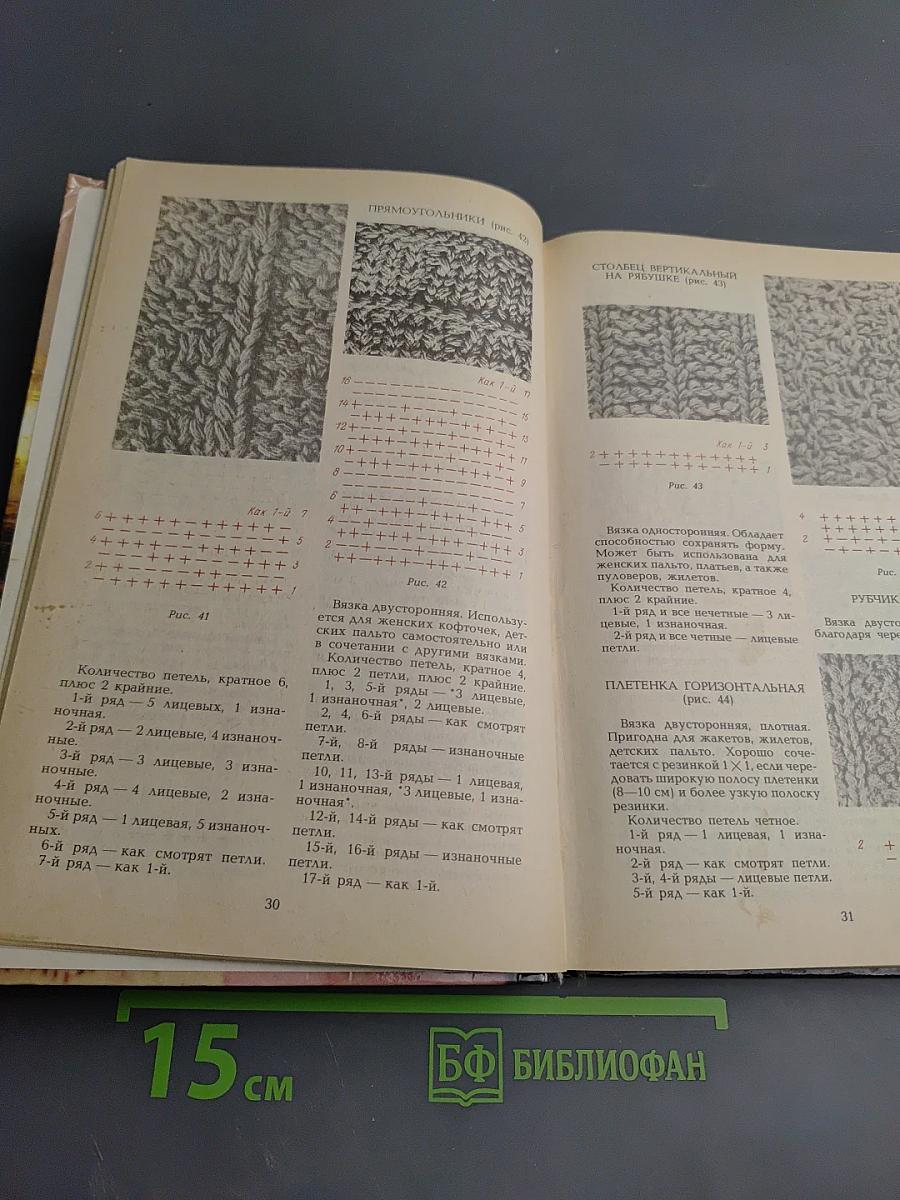 Как 1-й 7
6 + + + + + − + + + + + −
− − − − − + − − − − − + 5
Рис. 41
Количество петель, кратное 6,
плюс 2 крайние.
1-й ряд — 5 лицевых, 1 изна-
ночная.
2-й ряд — 2 лицевые, 4 изнаноч-
ные.
3-й ряд — 3 лицевые, 3 изна-
ночные.
4-й ряд — 4 лицевые, 2 изна-
ночные.
5-й ряд — 1 лицевая, 5 изнаноч-
ных.
6-й ряд — как смотрят петли.
7-й ряд — как 1-й.
30
ПРЯМОУГОЛЬНИКИ (рис. 42)
Как 1-й 17
16
15
14
13
12
11
10
9
8
7
6
5
4
3
2
1
Рис. 42
Вязка двусторонняя. Использу-
ется для женских кофточек, дет-
ских пальто самостоятельно или
в сочетании с другими вязками.
Количество петель, кратное 4,
плюс 2 петли, плюс 2 крайние.
1, 3, 5-й ряды — *3 лицевые,
1 изнаночная*, 2 лицевые.
2, 4, 6-й ряды — как смотрят
петли.
7-й, 8-й ряды — изнаночные
петли.
10, 11, 13-й ряды — 1 лицевая,
1 изнаночная, *3 лицевые, 1 изна-
ночная*.
12-й, 14-й ряды — как смотрят
петли.
15-й, 16-й ряды — изнаночные
петли.
17-й ряд — как 1-й.
СТОЛБЕЦ ВЕРТИКАЛЬНЫЙ
НА РЯБУШКЕ (рис. 43)
Как 1-й 3
2 + + + + + + + + + + + +
− + + + − + + + − + + + 1
Рис. 43
Вязка односторонняя. Обладает
способностью сохранять форму.
Может быть использована для
женских пальто, платьев, а также
пуловеров, жилетов.
Количество петель, кратное 4,
плюс 2 крайние.
1-й ряд и все нечетные — 3 ли-
цевые, 1 изнаночная.
2-й ряд и все четные — лицевые
петли.
ПЛЕТЕНКА ГОРИЗОНТАЛЬНАЯ
(рис. 44)
Вязка двусторонняя, плотная.
Пригодна для жакетов, жилетов,
детских пальто. Хорошо соче-
тается с резинкой 1×1, если чере-
довать широкую полосу плетенки
(8—10 см) и более узкую полоску
резинки.
Количество петель четное.
1-й ряд — 1 лицевая, 1 изна-
ночная.
2-й ряд — как смотрят петли.
3-й, 4-й ряды — лицевые петли.
5-й ряд — как 1-й.
31
4
2
Рис.
РУБЧИК
Вязка двусто
благодаря чере
2 +
−
15 см
БФ БИБЛИОФАН